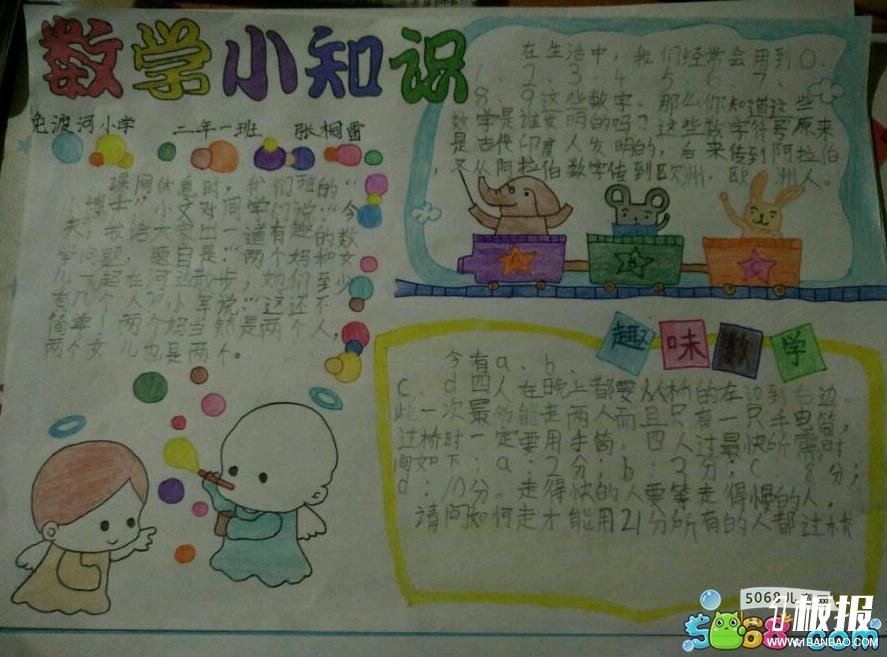 数学小知识
兔渡河小学 二年一班 张桐雷
课间休息时，我们班的“
小博士”小文对同学们说“今
天，我给大家出一道有趣的数
学问题，题目是：“两个妈和女
儿一起在河边散步，她们至少
有几个人”小军说“这还不
简单，两个妈当然是两个人，
两个女儿也是两个。
在生活中，我们经常会用到0、
1、2、3、4、5、6、7、
8、9这些数字。那么你知道这些
数字是谁发明的吗？这些数字符号原来
是古代印度人发明的，后来传到阿拉伯
，又从阿拉伯数字传到欧洲，欧洲人。
趣味数学
今有a、b、
c、d四人在晚上都要从桥的左边到右边。
此一次最多能走两人而且只有一只手电筒，
过桥时一定要用手筒。四人过最快所需时
间如下：a：2分；b：3分；c：8分；
d：10分。走得快的人要等走得慢的人，
请问如何走才能用21分所有的人都过桥
5068儿童网
板报
5068.com
WWW.1BANBAO.COM